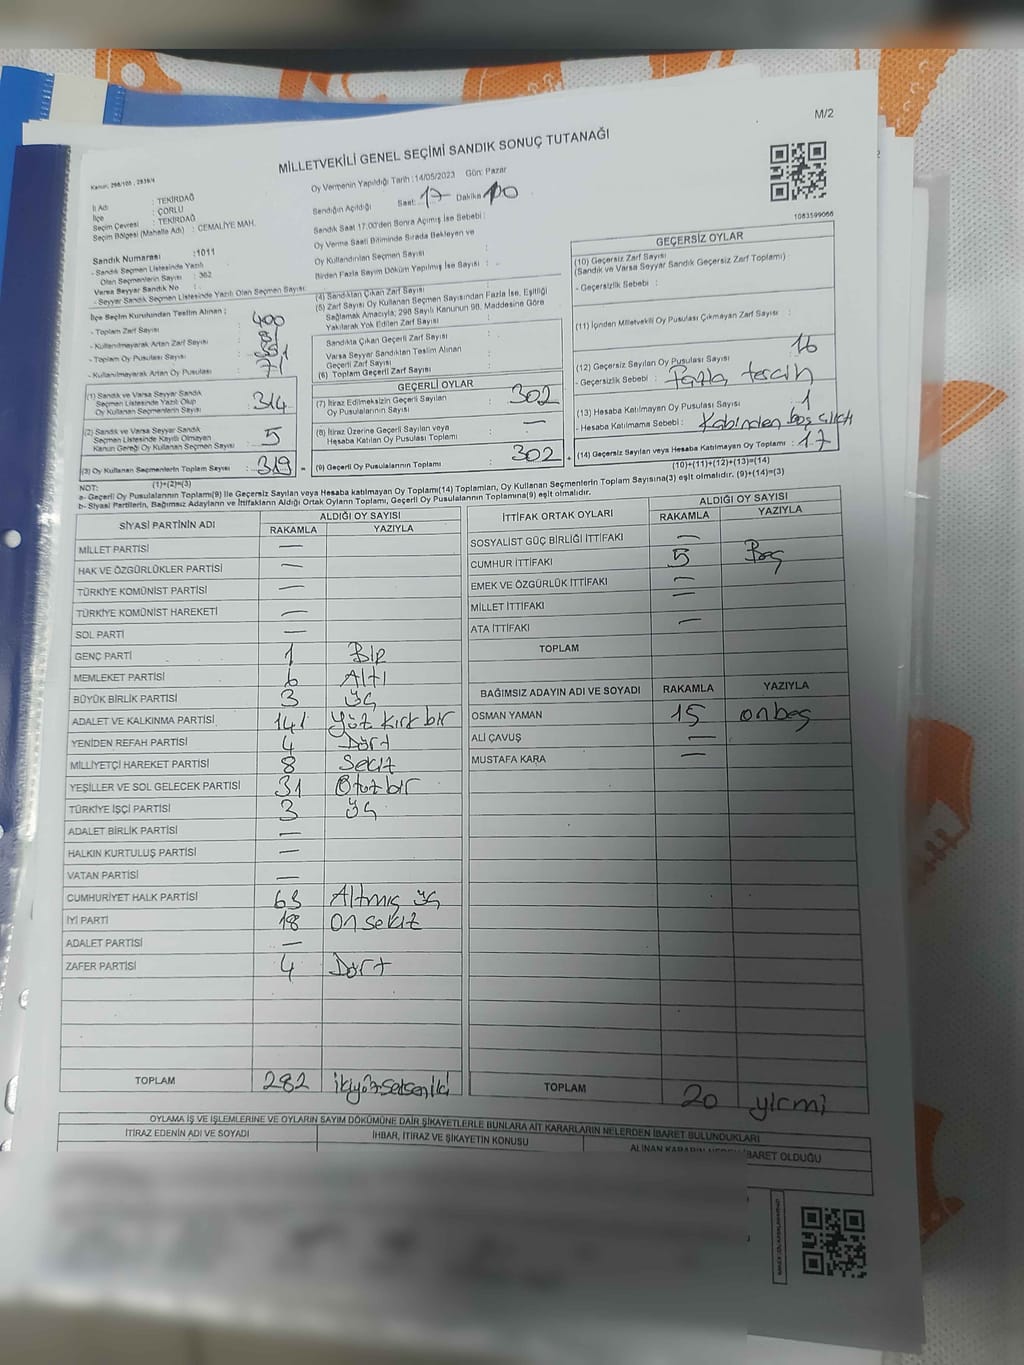 M/2
MİLLETVEKİLİ GENEL SEÇİMİ SANDIK SONUÇ TUTANAĞI
Oy Vermenin Yapıldığı Tarih : 14/05/2023 Gün: Pazar
Sandığın Açıldığı Saat: 17 Dakika
Sandık Saat 17.00'den Sonra Açılmış İse Sebebi :
Oy Verme Saati Bitiminde Sırada Bekleyen ve
Oy Kullandırılan Seçmen Sayısı :
Birden Fazla Sayım Döküm Yapılmış İse Sayısı :
1083599066
İl Adı : TEKİRDAĞ
İlçe : ÇORLU
Seçim Çevresi : TEKİRDAĞ
Seçim Bölgesi (Mahalle Adı) : CEMALİYE MAH.
Sandık Numarası :1011
- Sandık Seçmen Listesinde Yazılı
Olan Seçmenlerin Sayısı : 362
Varsa Seyyar Sandık No :
- Seyyar Sandık Seçmen Listesinde Yazılı Olan Seçmen Sayısı:
İlçe Seçim Kurulundan Teslim Alınan ;
- Toplam Zarf Sayısı : 400
- Kullanılmayarak Artan Zarf Sayısı : 81
- Toplam Oy Pusulası Sayısı :
- Kullanılmayarak Artan Oy Pusulası : 71
(1) Sandık ve Varsa Seyyar Sandık
Seçmen Listesinde Yazılı Olup
Oy Kullanan Seçmenlerin Sayısı : 314
(2) Sandık ve Varsa Seyyar Sandık
Seçmen Listesinde Kayıtlı Olmayan
Kanun Gereği Oy Kullanan Seçmen Sayısı : 5
(3) Oy Kullanan Seçmenlerin Toplam Sayısı : 319
(1)+(2)=(3)
(4) Sandıktan Çıkan Zarf Sayısı
(5) Zarf Sayısı Oy Kullanan Seçmen Sayısından Fazla İse, Eşitliği
Sağlamak Amacıyla; 298 Sayılı Kanunun 98. Maddesine Göre
Yakılarak Yok Edilen Zarf Sayısı :
Sandıkta Çıkan Geçerli Zarf Sayısı :
Varsa Seyyar Sandıktan Teslim Alınan
Geçerli Zarf Sayısı :
(6) Toplam Geçerli Zarf Sayısı :
GEÇERLİ OYLAR
(7) İtiraz Edilmeksizin Geçerli Sayılan
Oy Pusulalarının Sayısı : 302
(8) İtiraz Üzerine Geçerli Sayılan veya
Hesaba Katılan Oy Pusulası Toplamı : —
(9) Geçerli Oy Pusulalarının Toplamı : 302
GEÇERSİZ OYLAR
(10) Geçersiz Zarf Sayısı
(Sandık ve Varsa Seyyar Sandık Geçersiz Zarf Toplamı) :
- Geçersizlik Sebebi :
(11) İçinden Milletvekili Oy Pusulası Çıkmayan Zarf Sayısı :
(12) Geçersiz Sayılan Oy Pusulası Sayısı : 16
- Geçersizlik Sebebi : Fazla tercih
(13) Hesaba Katılmayan Oy Pusulası Sayısı : 1
- Hesaba Katılmama Sebebi : Kabinden boş çıktı
(14) Geçersiz Sayılan veya Hesaba Katılmayan Oy Toplamı : 17
(10)+(11)+(12)+(13)=(14)
NOT:
a- Geçerli Oy Pusulalarının Toplamı(9) ile Geçersiz Sayılan veya Hesaba katılmayan Oy Toplamı(14) Toplamları, Oy Kullanan Seçmenlerin Toplam Sayısına(3) eşit olmalıdır. (9)+(14)=(3)
b- Siyasi Partilerin, Bağımsız Adayların ve İttifakların Aldığı Ortak Oyların Toplamı, Geçerli Oy Pusulalarının Toplamına(9) eşit olmalıdır.
SİYASİ PARTİNİN ADI ALDIĞI OY SAYISI
RAKAMLA YAZIYLA
MİLLET PARTİSİ —
HAK VE ÖZGÜRLÜKLER PARTİSİ —
TÜRKİYE KOMÜNİST PARTİSİ —
TÜRKİYE KOMÜNİST HAREKETİ —
SOL PARTİ —
GENÇ PARTİ 1 Bir
MEMLEKET PARTİSİ 6 Altı
BÜYÜK BİRLİK PARTİSİ 3 üç
ADALET VE KALKINMA PARTİSİ 141 Yüz kırk bir
YENİDEN REFAH PARTİSİ 4 Dört
MİLLİYETÇİ HAREKET PARTİSİ 8 Sekiz
YEŞİLLER VE SOL GELECEK PARTİSİ 31 Otuz bir
TÜRKİYE İŞÇİ PARTİSİ 3 üç
ADALET BİRLİK PARTİSİ —
HALKIN KURTULUŞ PARTİSİ —
VATAN PARTİSİ —
CUMHURİYET HALK PARTİSİ 63 Altmış üç
İYİ PARTİ 18 On sekiz
ADALET PARTİSİ —
ZAFER PARTİSİ 4 Dört
TOPLAM 282 ikiyüzseksen iki
İTTİFAK ORTAK OYLARI ALDIĞI OY SAYISI
RAKAMLA YAZIYLA
SOSYALİST GÜÇ BİRLİĞİ İTTİFAKI —
CUMHUR İTTİFAKI 5 Beş
EMEK VE ÖZGÜRLÜK İTTİFAKI —
MİLLET İTTİFAKI —
ATA İTTİFAKI —
TOPLAM
BAĞIMSIZ ADAYIN ADI VE SOYADI RAKAMLA YAZIYLA
OSMAN YAMAN 15 onbeş
ALİ ÇAVUŞ —
MUSTAFA KARA —
TOPLAM 20 yirmi
OYLAMA İŞ VE İŞLEMLERİNE VE OYLARIN SAYIM DÖKÜMÜNE DAİR ŞİKAYETLERLE BUNLARA AİT KARARLARIN NELERDEN İBARET BULUNDUKLARI
İTİRAZ EDENİN ADI VE SOYADI İHBAR, İTİRAZ VE ŞİKAYETİN KONUSU ALINAN KARARIN NEDEN İBARET OLDUĞU